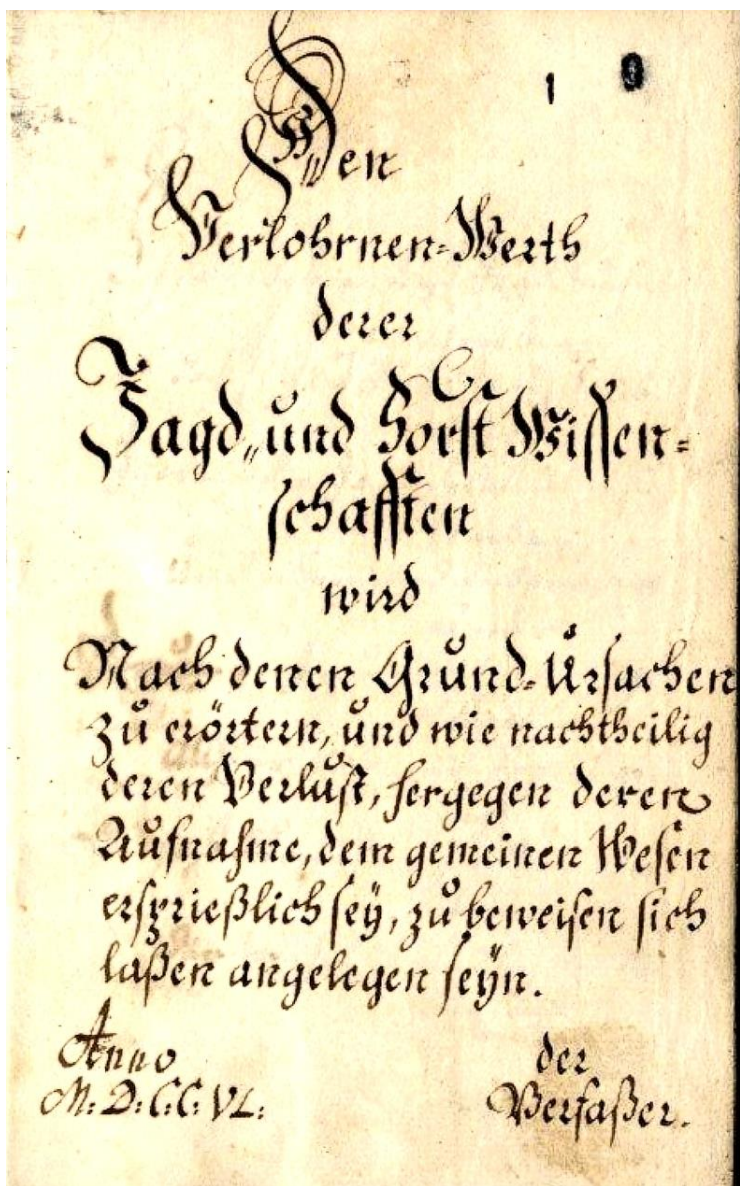 1
Den
Verlohrnen-Werth
derer
Jagd„ und Forst Wissen-
schafften
wird
Nach denen Grund-Ursachen
zu erörtern, und wie nachtheilig
deren Verlust, hergegen deren
Aufnahme, dem gemeinen Wesen
ersprießlich seÿ, zu beweisen sich
laßen angelegen seÿn.
Anno der
M: D: C: C: VL: Verfaßer.